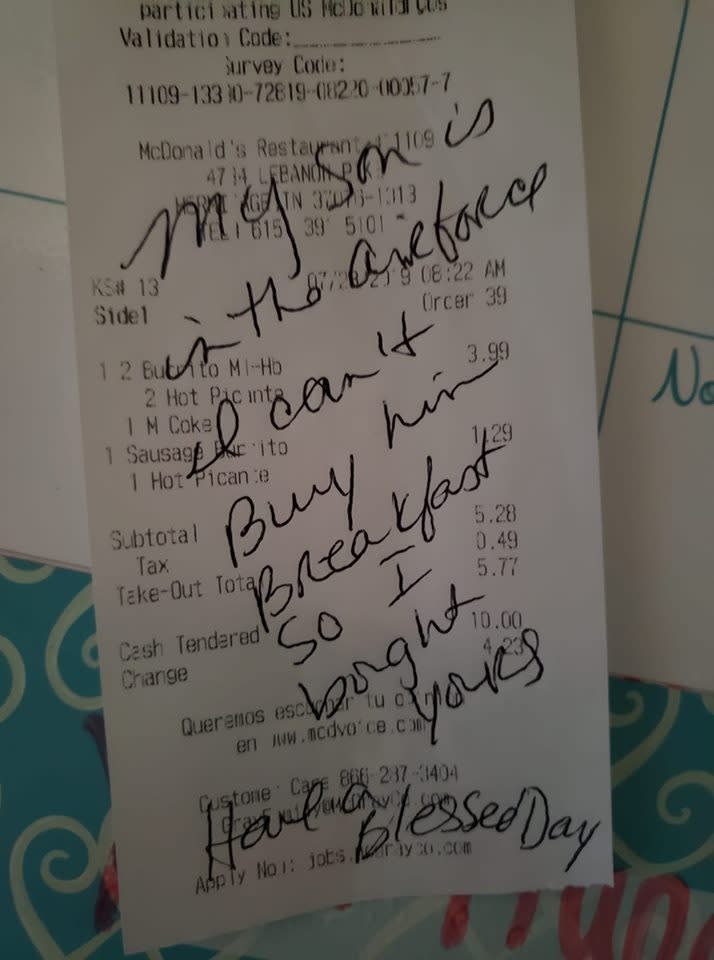 participating US McDonald's
Validation Code:
Survey Code:
11109-13330-72819-08220-00057-7
McDonald's Restaurant 1109
LEBANON
TN
TEL 615
My son is
in the aireforce
I can't
Buy him
Breakfast
so I
bought
yours
Have a
Blessed Day
KS# 13
08:22 AM
Side1
Order 39
1 2 Burrito Ml-Hb 3.99
2 Hot Picante
1 M Coke
1 Sausage Burrito 1.29
1 Hot Picante
Subtotal 5.28
Tax 0.49
Take-Out Total 5.77
Cash Tendered 10.00
Change 4.23
Queremos escuchar tu
en www.mcdvoice.com
Customer Care 866-237-3404
Apply Now: jobs.
No